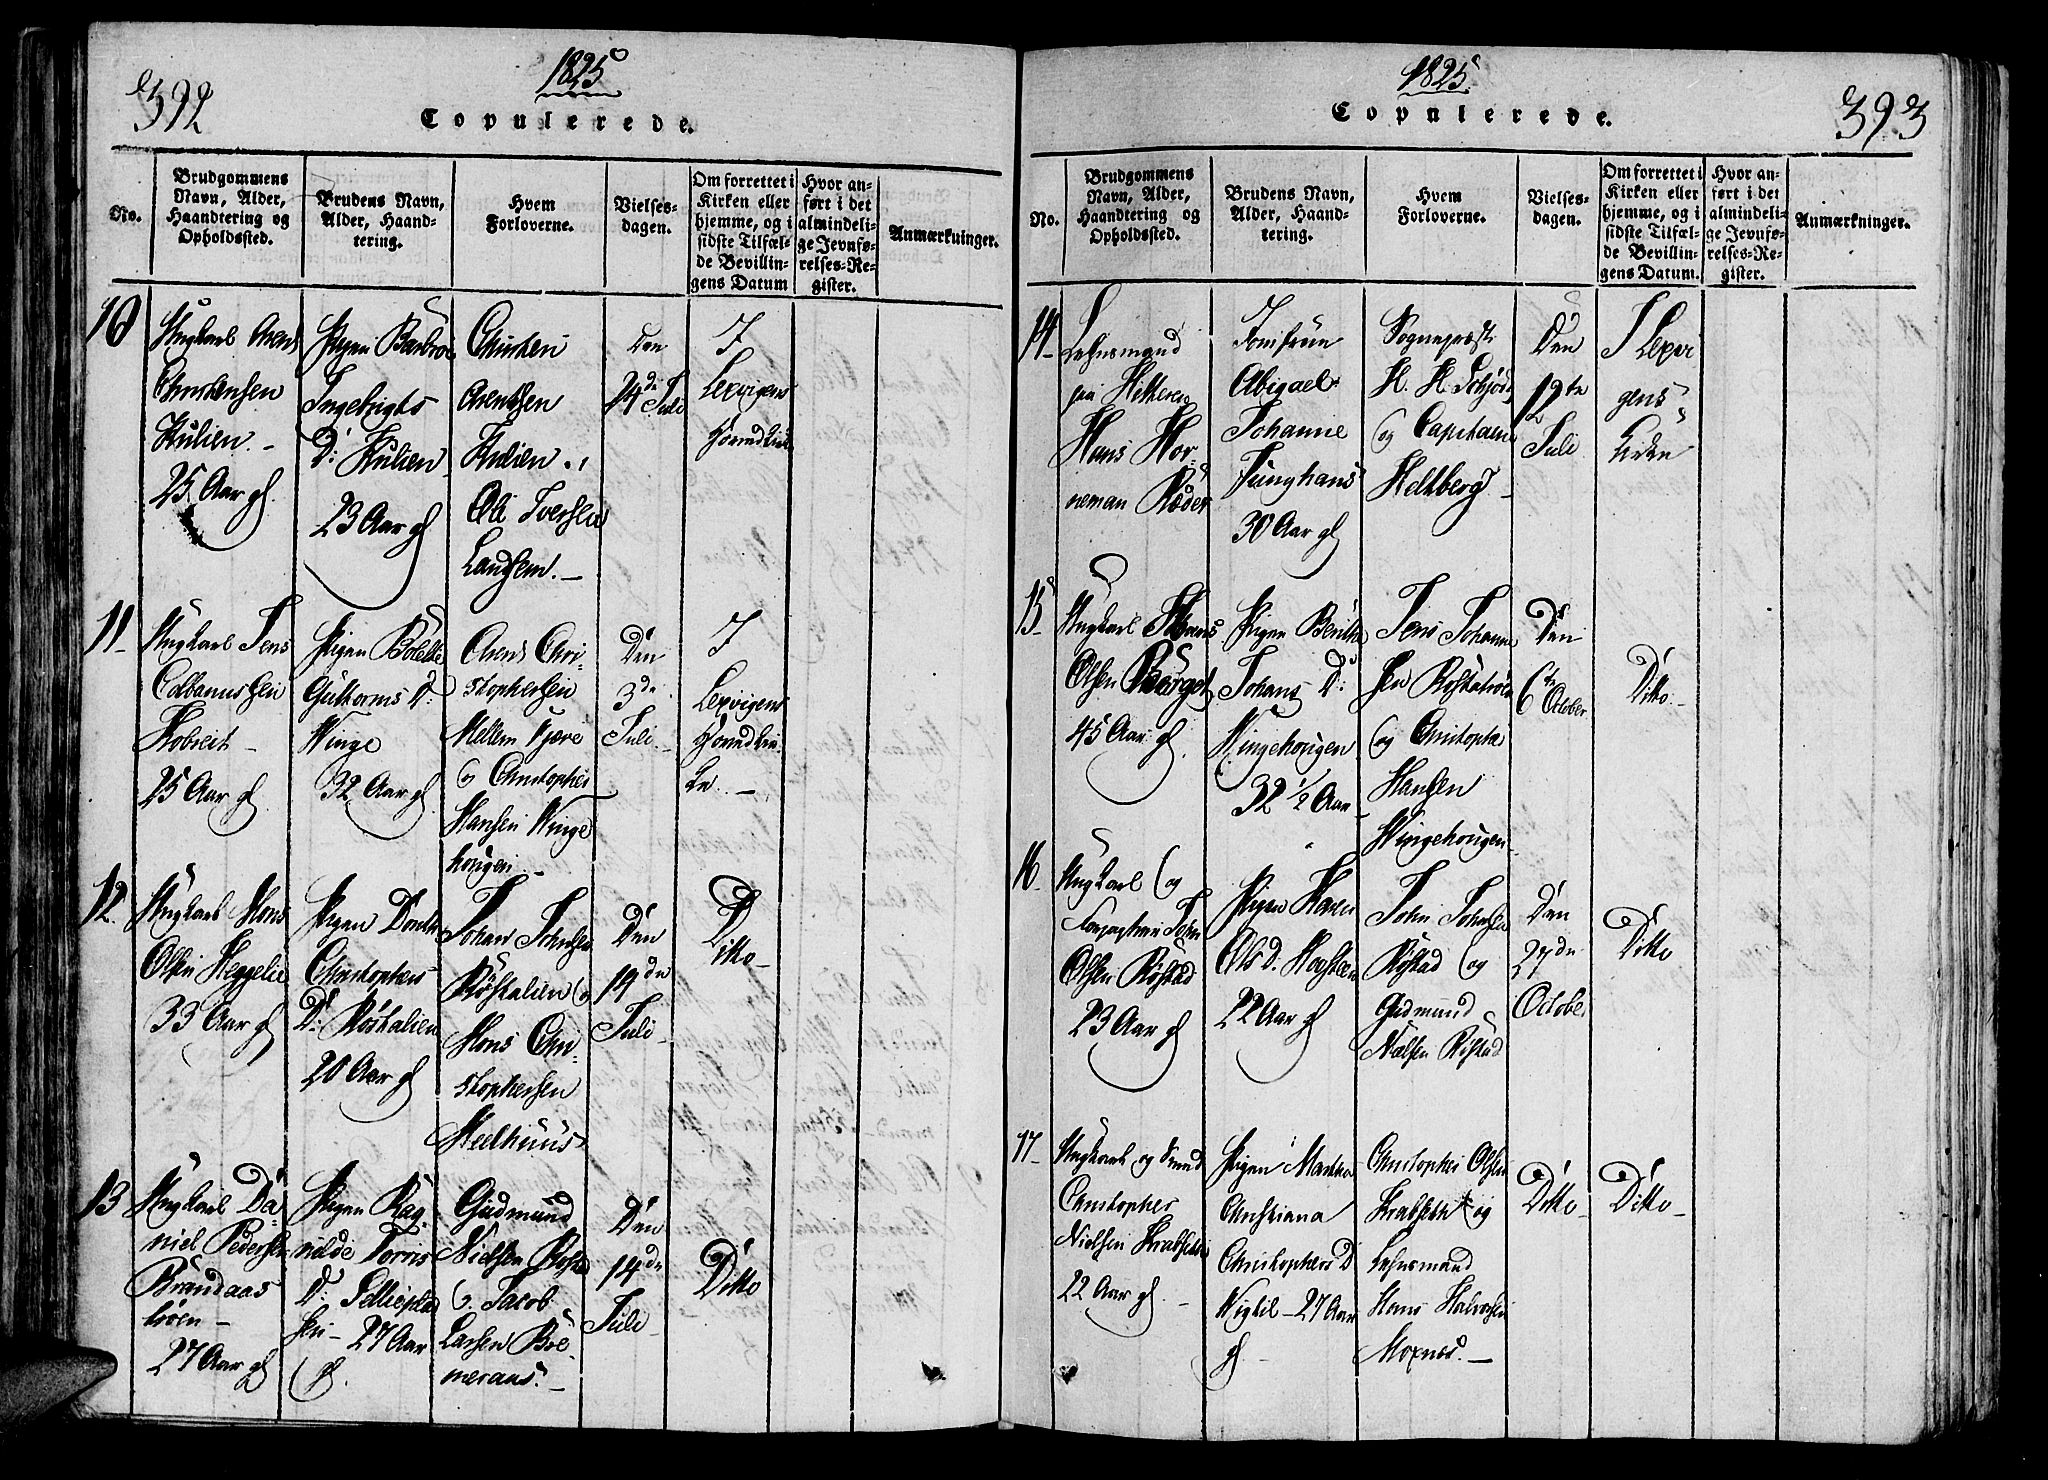 392
1825
Copulerede.
No.
Brudgommens
Navn, Alder,
Haandtering og
Opholdssted.
Brudens Navn,
Alder, Haand-
tering.
Hvem
Forloverne.
Vielses-
dagen.
Om forrettet i
Kirken eller
hjemme, og i
sidste Tilfæl-
de Bevillin-
gens Datum
Hvor an-
ført i det
almindeli-
ge Jevnfø-
relses-Re-
gister.
Anmærkninger.
10
Ungkarl Arent
Christensen
Hulien.-
25 Aar gl.
Pigen Barbroe
Ingebrigts
D: Hulien
23 Aar gl
Christen
Arentsen
Hulien.,
Ole Iversen
Den
24de Juli
I
Lexvigens
Hovedkirke
11
Ungkarl Jens
Colbanussen
25 Aar gl
Pigen
Guttorms D:
Winge
32 Aar gl
Arent Chri-
stophersen
Mellem
og Christopher
Hansen Winge
hougen -
Den
3de
Juli.
I
Lexvigens
Hovedkir-
ke. -
12.
Ungkarl Hans
Olsen Heggelie
33 Aar gl
Pigen
Christophers
D: Røstalien
20 Aar gl
Johan Johnsen
Røstalien og
Hans Chri-
stophersen
Meelhuus
Den
19de
Juli-
Ditto-
13
Ungkarl Da-
niel Pedersen
Brandaas
trøen-
27 Aar gl
Pigen Rag-
nilde Torris
D:
27 Aar
gl.
Gudmund
Nielsen
o. Jacob
Larsen
Den
14de
Juli-
Ditto
393
1825.
Copulerede.
No.
Brudgommens
Navn, Alder,
Haandtering og
Opholdssted.
Brudens Navn,
Alder, Haand-
tering.
Hvem
Forloverne.
Vielses-
dagen.
Om forrettet i
Kirken eller
hjemme, og i
sidste Tilfæl-
de Bevillin-
gens Datum.
Hvor an-
ført i det
almindeli-
ge Jevnfø-
relses-Re-
gister.
Anmærkninger.
14-
Lehnsmand
paa Hitteren
Hans Hor-
neman Røder
Jomfrue
Abigael
Johanne
Junghans
30 Aar gl
Sognepræst
H. H. Schjøtz
og Capitaine
Heltberg -
Den
12te
Juli
I Lexvi
gens
Kirke
15-
Ungkarl Hans
Olsen Berget
45 Aar gl.
Pigen Berithe
Johans D:
Wingehougen
32 1/2 Aar
Jens Johanne
sen
og Christopher
Hansen
Wingehougen-
Den
6te October
Ditto.-
16-
Ungkarl og
John
Olsen Røstad
23 Aar gl
Pigen Karen
Ols D.
22 Aar gl
John Johnsen
Røstad og
Gudmund
Nielsen Røstad
Den
27de
October
Ditto
17-
Ungkarl og
Christopher
Nielsen Krabseth
22 Aar gl. -
Pigen Martha
Christiana
Christophers D
27 Aar
gl -
Christopher Olsen
Krabseth og
Lehnsmand
Hans Halvorsen
Moxnes. -
Ditto-
Ditto-